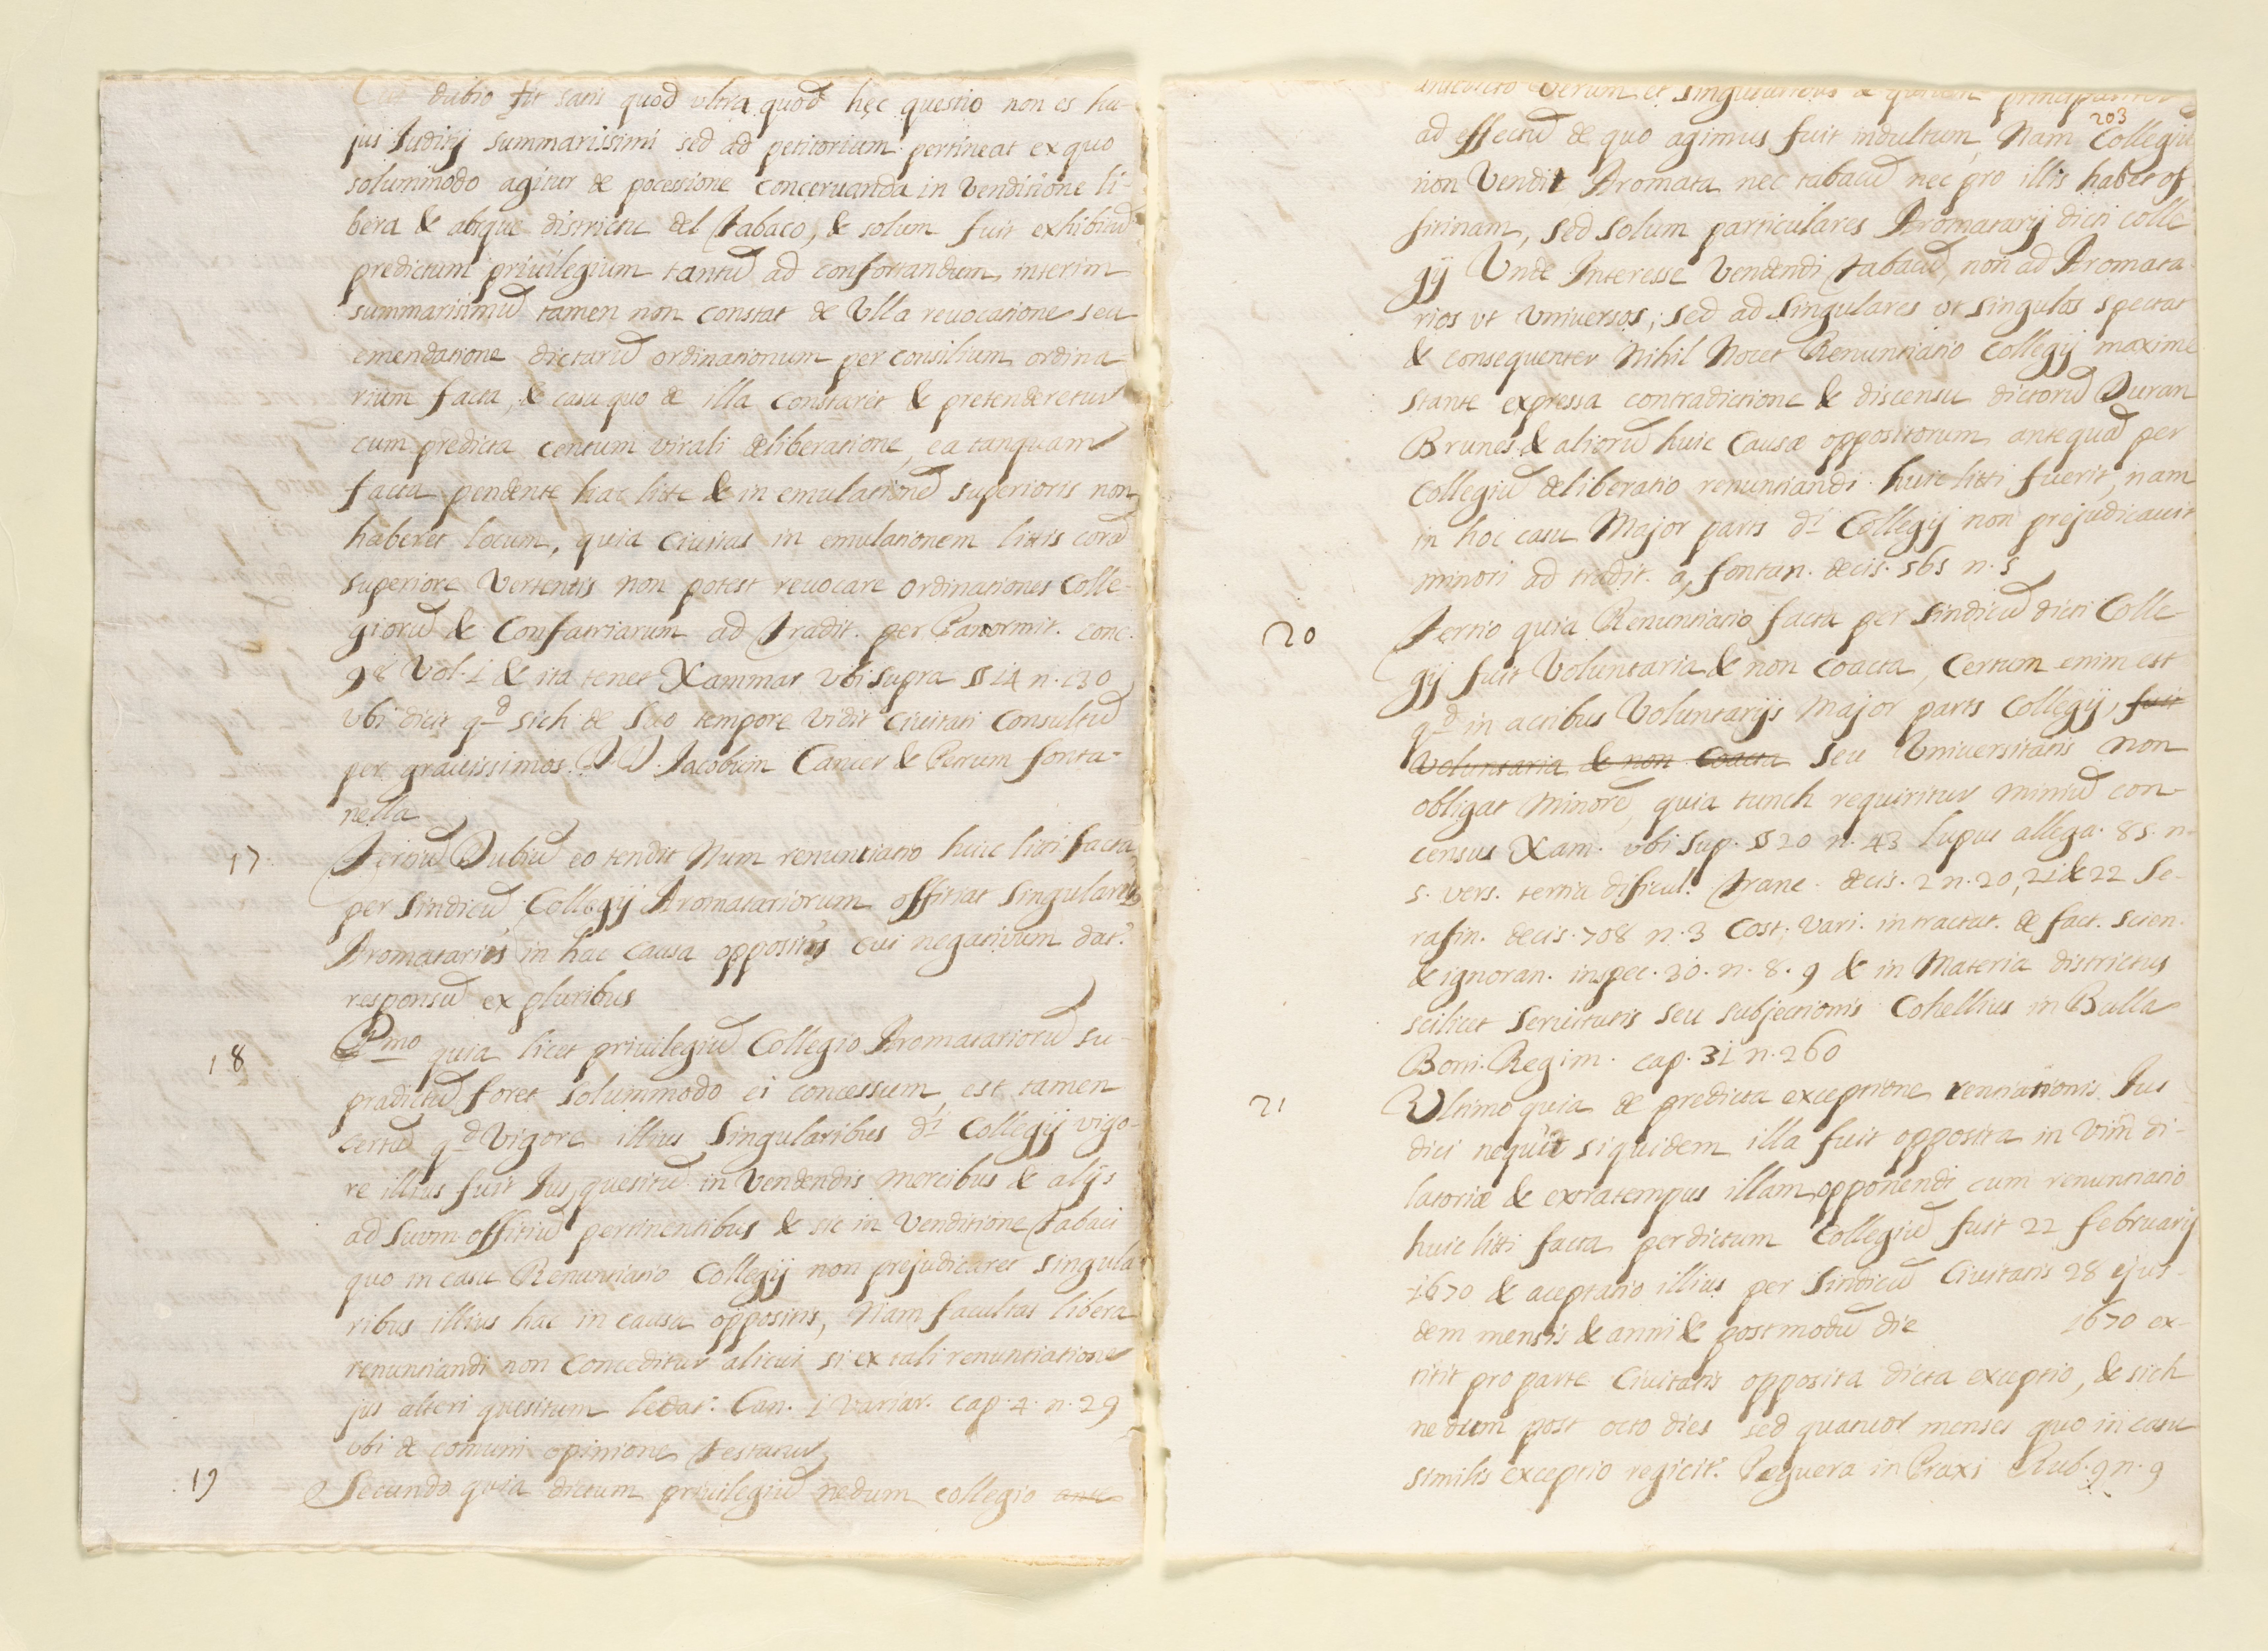 dubio fit satis quod ultra quod hęc questio non es hu-
jus Juditij summariisimi sed ad petitorium pertineat ex quo
solummodo agitur de pocessione conceruanda in Venditione li-
bera & absque districtu del Tabaco, & solum fuit exhibitũ
predictum priuilegium tantũ ad confortandum interim
summarisimũ tamen non constat de Vlla reuocatione seu
emendatione dictarũ ordinationum per consilium ordina
rium facta, & casu quo de illa constaret & pretenderetur
cum predicta centum virali deliberatione, ea tanquam
facta pendente hac litte & in emulationẽ superioris non
haberet locum, quia Ciuitas in emulationem littis corã
superiore Vertentis non potest reuocare ordinationes Colle-
giorũ & Confatriarum ad Tradit. per Panormit. conc.
98 Vol. 1 & ita tenet Xammar vbi supra § 14 n. 130
vbi dicit qd sich de suo tempore vidit Ciuitati Consultũ
per grauissimos DD. Jacobum Cancer & Petrum fonta-
nella
17 Tertiũ Dubiũ eo tendit Num renuntiatio huic litti facta
per Sindicũ Collegij Aromatariorum offitiat singularibus
Aromatariis in hac causa oppositis cui negatiuum dat.r
responsũ ex pluribus
18 Pmo quia licet priuilegiũ Collegio Aromatariorũ su-
pradictũ foret solummodo ei concessum, est tamen
certũ qd Vigore illius Singularibus di Collegij vigo-
re illius fuit Jus quesitũ in Vendendis mercibus & alijs
ad suum offitiũ pertinentibus & sic in Venditione Tabaci
quo in casu Renuntiatio Collegij non prejudicaret singula
ribus illius hac in causa oppositis, Nam facultas libera
renuntiandi non conceditur alicui si ex tali renuntiatione
jus alteri quesitum ledat.r Can. 1 variar. cap. 4. n. 29
vbi de comuni opinione testatur
19 Secundo quia dictum priuilegiũ nedum collegio
Verum et singularibus a principaliter
203
ad effectũ de quo agimus fuit indultum, Nam Collegiũ
non Vendit Aromata nec tabacũ nec pro illis habet of
fitinam, sed solum particulares Aromatarij dicti colle
gij Vnde Interesse Vendendi tabacũ, non ad Aromata
rios vt vniuersos, sed ad singulares vt singulos spectat
& consequenter Nihil Nocet Renuntiatio Collegij maxime
stante expressa contradictione & discensu dictorũ Duran
Brunes & aliorũ huic Causæ oppositorum antequã per
Collegiũ deliberatio renuntiandi huic litti fuerit, nam
in hoc casu Major pars di Collegij non prejudicauit
minori ad tradit. a fontan. decis. 565 n. 5
20 Tertio quia Renuntiatio facta per Sindicũ dicti Colle
gij fuit Voluntaria & non coacta, Certum enim est
qd in actibus Voluntarijs Major pars Collegij, fuit
Voluntaria & non Coacta seu Vniuersitatis non
obligat minorẽ, quia tunch requiritur omniũ con-
census Xam. vbi sup. § 20 n. 43 lupus allega. 85. n.
5. vers. tertia dificul. Franc. decis. 2 n. 20, 21 & 22 Se-
rafin. decis. 708 n. 3 Cost. Vari. in tractat. de fact. scien.
& ignoran. inspec. 30. n. 8. 9 & in Materia districtus
scilicet seruitutis seu subjectionis Cohellius in Bulla
Boni. Regim. cap. 31 n. 260
21 Vltimo quia de predicta exceptione rentiationis Jus
dici nequit siquidem illa fuit opposita in vim di-
latoriæ & extratempus illam opponendi cum renuntiatio
huic litti facta per dictum Collegiũ fuit 22 februarij
1670 & aceptatio illius per Sindicũ Ciuitatis 28 ejus-
dem mensis & anni & postmodũ die 1670 ex-
titit pro parte Ciuitatis opposita dicta exceptio, & sich
nedum post octo dies sed quatuor menses quo in casu
similis exceptio regicit.r Peguera in Praxi Rub. 9 n. 9